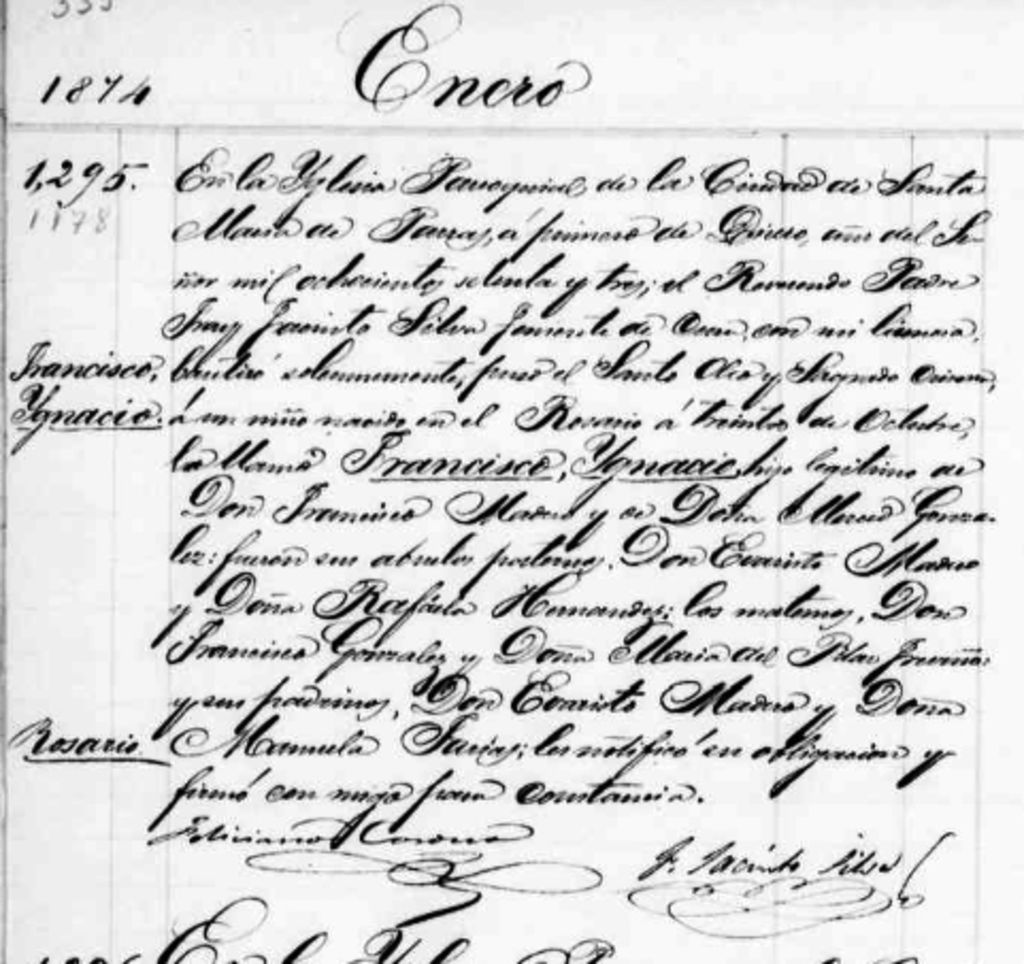 333
1874 Enero
1,295. En la Yglesia Parroquial, de la Ciudad de Santa
1178 Maria de Parras, á primero de Enero, año del Se-
ñor mil ochocientos setenta y tres; el Reverendo Padre
Fray Jacinto Silva Teniente de Cura, con mi licencia,
Francisco, bautizó solemnemente, puso el Santo Oleo y Sagrado Crisma,
Ygnacio. á un niño nacido en el Rosario á treinta de Octubre,
lo llamó Francisco, Ygnacio, hijo legitimo de
Don Francisco Madero y de Doña Merced Gonza-
lez: fueron sus abuelos paternos, Don Evaristo Madero
y Doña Rafaela Hernandez; los maternos, Don
Francisco Gonzalez y Doña Maria del Pilar Treviño:
y sus padrinos, Don Evaristo Madero y Doña
Rosario. Manuela Farias; les notificó su obligacion y
firmó con migo para constancia.
Feliciano Corona
F. Jacinto Silva